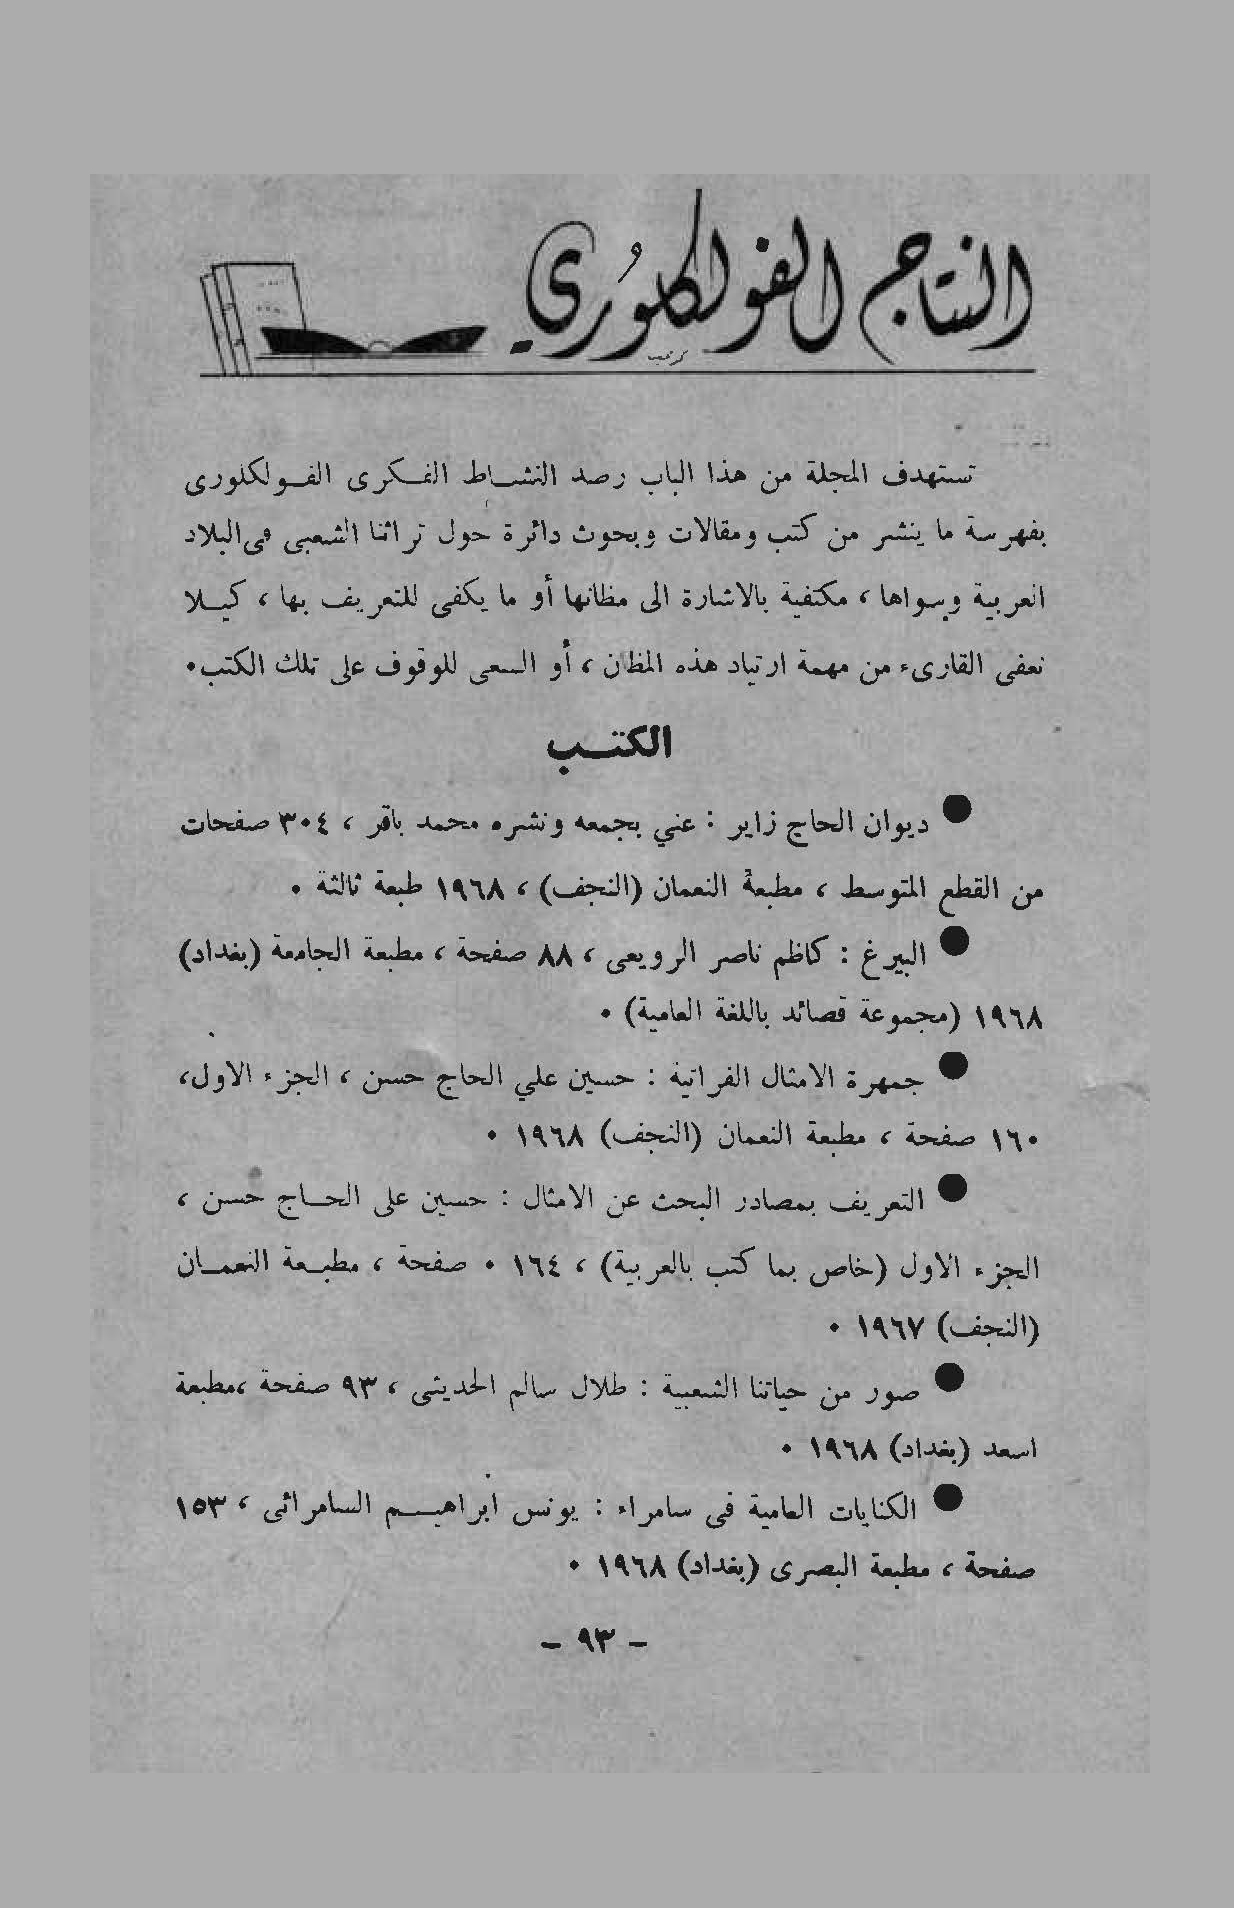 النتاج الفولكلوري
تستهدف المجلة من هذا الباب رصد النشاط الفكرى الفولكلورى
بفهرسة ما ينشر من كتب ومقالات وبحوث دائرة حول تراثنا الشعبى فى البلاد
العربية وسواها ، مكتفية بالاشارة الى مظانها أو ما يكفى للتعريف بها ، كيلا
نعفى القارىء من مهمة ارتياد هذه المظان ، أو السعى للوقوف على تلك الكتب .
الكتب
● ديوان الحاج زاير : عني بجمعه ونشره محمد باقر ، ٣٠٤ صفحات
من القطع المتوسط ، مطبعة النعمان (النجف) ، ١٩٦٨ طبعة ثالثة .
● البيرغ : كاظم ناصر الرويعى ، ٨٨ صفحة ، مطبعة الجامعة (بغداد)
١٩٦٨ (مجموعة قصائد باللغة العامية) .
● جمهرة الامثال الفراتية : حسين علي الحاج حسن ، الجزء الاول،
١٦٠ صفحة ، مطبعة النعمان (النجف) ١٩٦٨ .
● التعريف بمصادر البحث عن الامثال : حسين على الحاج حسن ،
الجزء الاول (خاص بما كتب بالعربية) ، ١٦٤ . صفحة ، مطبعة النعمان
(النجف) ١٩٦٧ .
● صور من حياتنا الشعبية : طلال سالم الحديثى ، ٩٣ صفحة ،مطبعة
اسعد (بغداد) ١٩٦٨ .
● الكنايات العامية فى سامراء : يونس ابراهيم السامرائى ، ١٥٣
صفحة ، مطبعة البصرى (بغداد) ١٩٦٨ .
– ٩٣ –